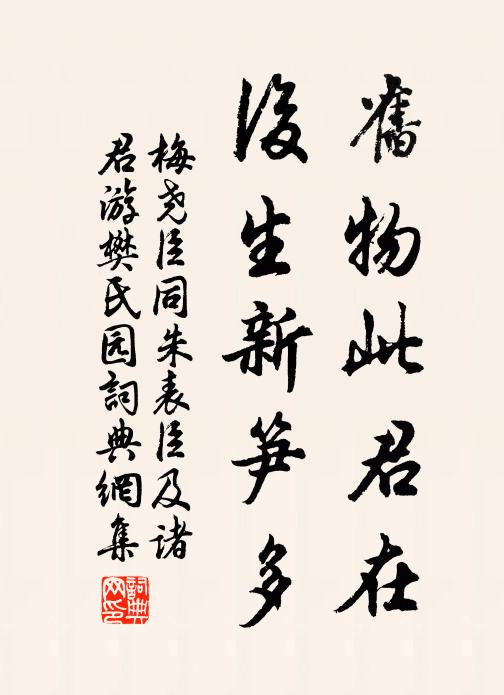 舊物此君在
後生新笋多
梅尧臣同朱表臣及諸
君游樊氏园詞典網集
詞典網印